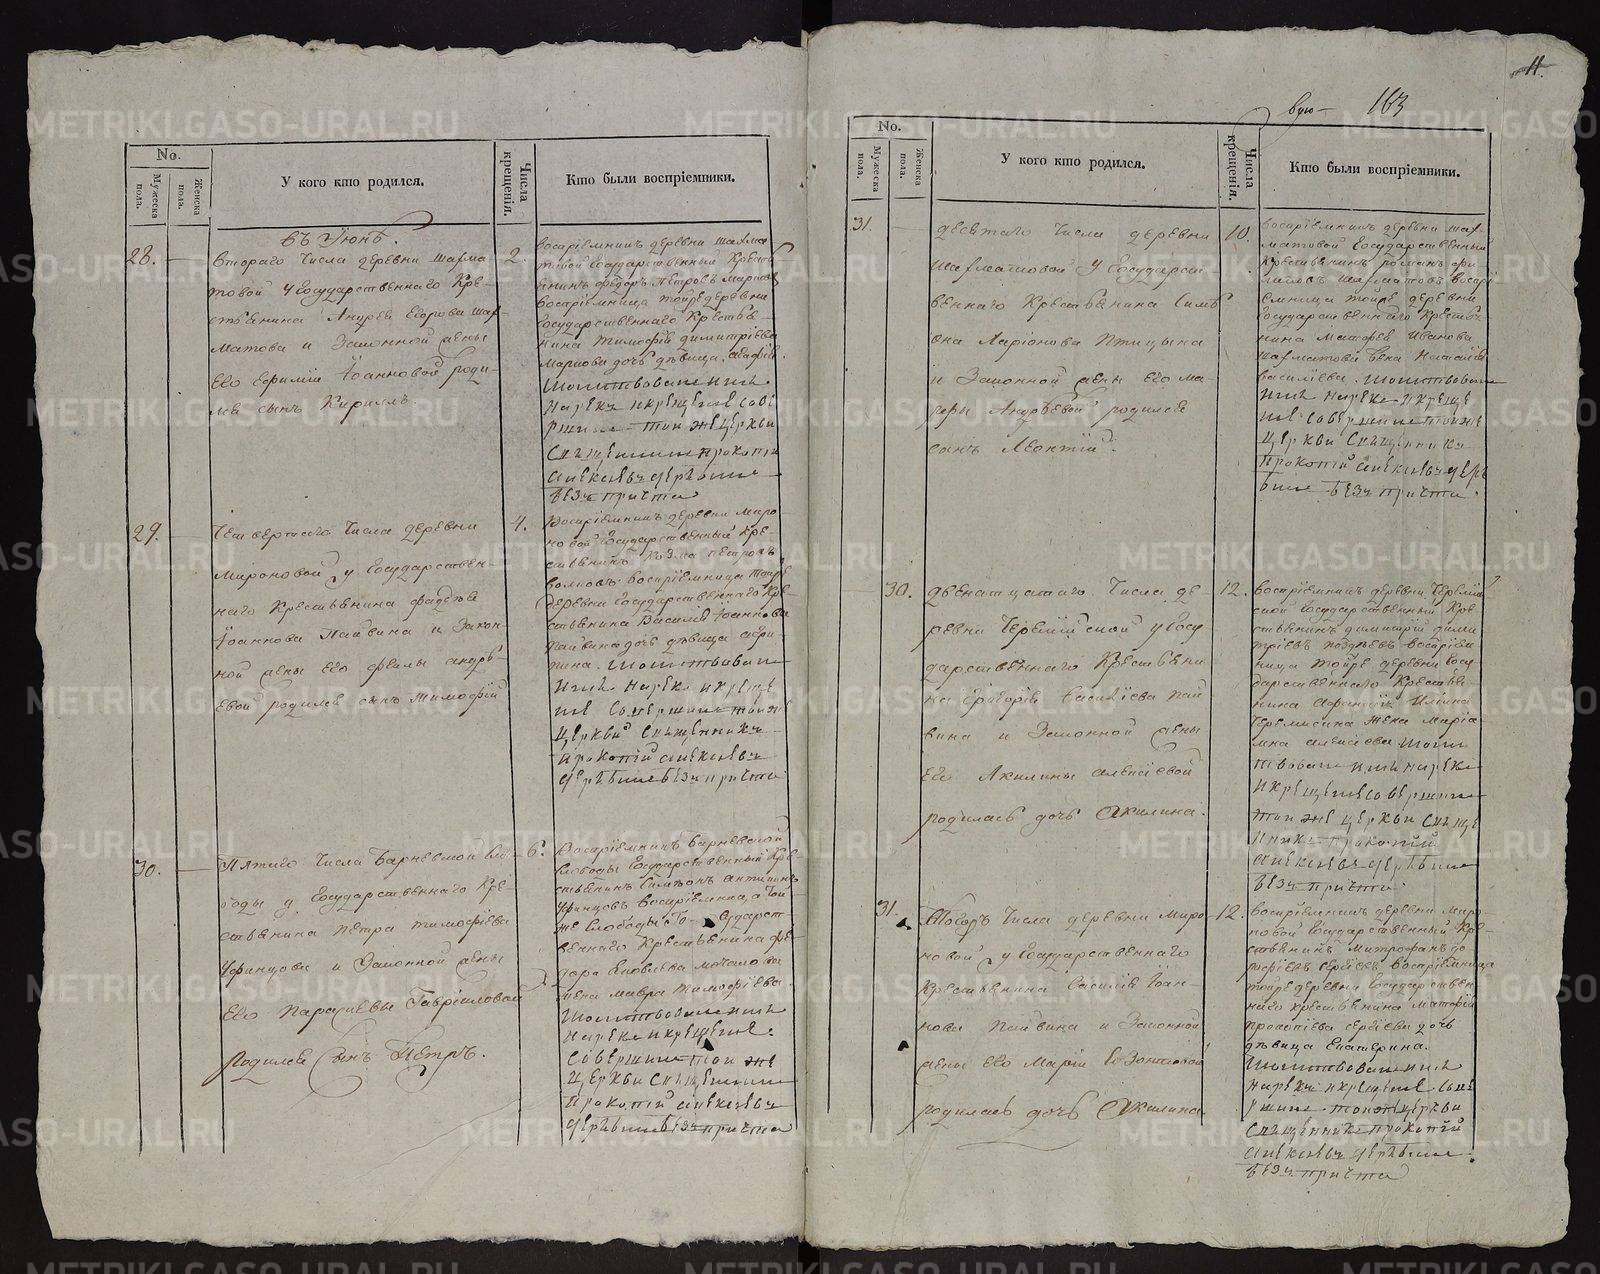 No.
Мужеска пола.
Женска пола.
У кого кто родился.
Числа крещенія.
Кто были воспріемники.
въ Іюнѣ.
28.
втораго числа деревни Шахма
товой у Государственнаго Кре-
стьянина Андрея Егорова Шах-
матова и Законной жены
его Евфиміи Іоанновой роди-
лся сынъ Кириллъ.
2.
воспріемникъ деревни Шахма
товой Государственный Кресть
янинъ Федоръ Петровъ
воспріемница тояже деревни
Государственнаго Крестья-
нина Тимофея Димитріева
дочь дѣвица
Молитвовалъ имя
нарекъ и крещеніе сове
ршилъ тои же церкви
Священникъ Прокопій
безъ причта
29.
Четвертаго числа деревни
Мироновой у Государствен
наго Крестьянина Фадѣя
Іоаннова Пайвина и Закон-
ной жены его Феклы Андрѣ-
евой родился сынъ Тимофей
4.
Воспріемникъ деревни Миро-
новой Государственный Кре-
стьянинъ Козма Петровъ
воспріемница тояже
деревни Государственнаго Кре-
стьянина Василія Іоаннова
Пайвина дочь дѣвица
Молитвовалъ
имя нарекъ и креще
ніе совершилъ тои же
церкви Священникъ
Прокопій
безъ причта
30.
Пятаго числа Барневской Сло-
боды у Государственнаго Кре
стьянина Петра Тимофеева
Уфинцова и Законной жены
его Параскевы Гавріиловой
родился сынъ Петръ.
6.
Воспріемникъ Барневской
Слободы Государственный Кре-
стьянинъ
Уфинцовъ воспріемница, а той
же Слободы Государст
веннаго Крестьянина Фе-
дора Яковлева
жена Мавра Тимофеева.
Молитвовалъ имя
нарекъ и крещеніе
совершилъ тои же
церкви Священникъ
Прокопій
безъ причта
11.
163
No.
Мужеска пола.
Женска пола.
У кого кто родился.
Числа крещенія.
Кто были воспріемники.
31.
десятаго числа деревни
Шахматовой у Государст-
веннаго Крестьянина Симе
она Ларіонова Птицына
и Законной жены его Ма-
рфы Андреевой родился
сынъ Леонтій.
10.
воспріемникъ деревни Шах-
матовой Государственный
Крестьянинъ Романъ
Шахматовъ воспрі
емница тояже деревни
Государственнаго Крестья
нина Матфея Иванова
Шахматова жена Наталія
Васильева. Молитвовалъ
имя нарекъ и креще
ніе совершилъ тои же
церкви Священникъ
Прокопій
безъ причта.
30.
двенатцатаго числа де-
ревни у Госу
дарственнаго Крестьяни
на Григорія Васильева Пай
вина и Законной жены
его Акилины Алексѣевой
родилась дочь Акилина.
12.
воспріемникъ деревни
Государственный Кре
стьянинъ Димитрій Дими
тріевъ воспріем
ница тояже деревни Госу
дарственнаго Крестья-
нина Афанасія Ильина
жена Маріа
мна Алексѣева Моли
твовалъ имя нарекъ
и крещеніе совершилъ
тои же церкви Свяще
нникъ Прокопій
безъ причта.
31.
Тогожъ числа деревни Миро
новой у Государственнаго
Крестьянина Василія Іоан-
нова Пайвина и Законной
жены его Маріи
родилась дочь Акилина
12.
воспріемникъ деревни Миро-
новой Государственный Кре-
стьянинъ Митрофанъ До
рофеевъ Сергѣевъ воспріемница
тояже деревни Государствен
наго крестьянина Матфея
Прокопіева Сергѣева дочь
дѣвица Екатерина.
Молитвовалъ имя
нарекъ и крещеніе сове
ршилъ тои же церкви
Священникъ Прокопій
безъ причта
METRIKI.GASO-URAL.RU